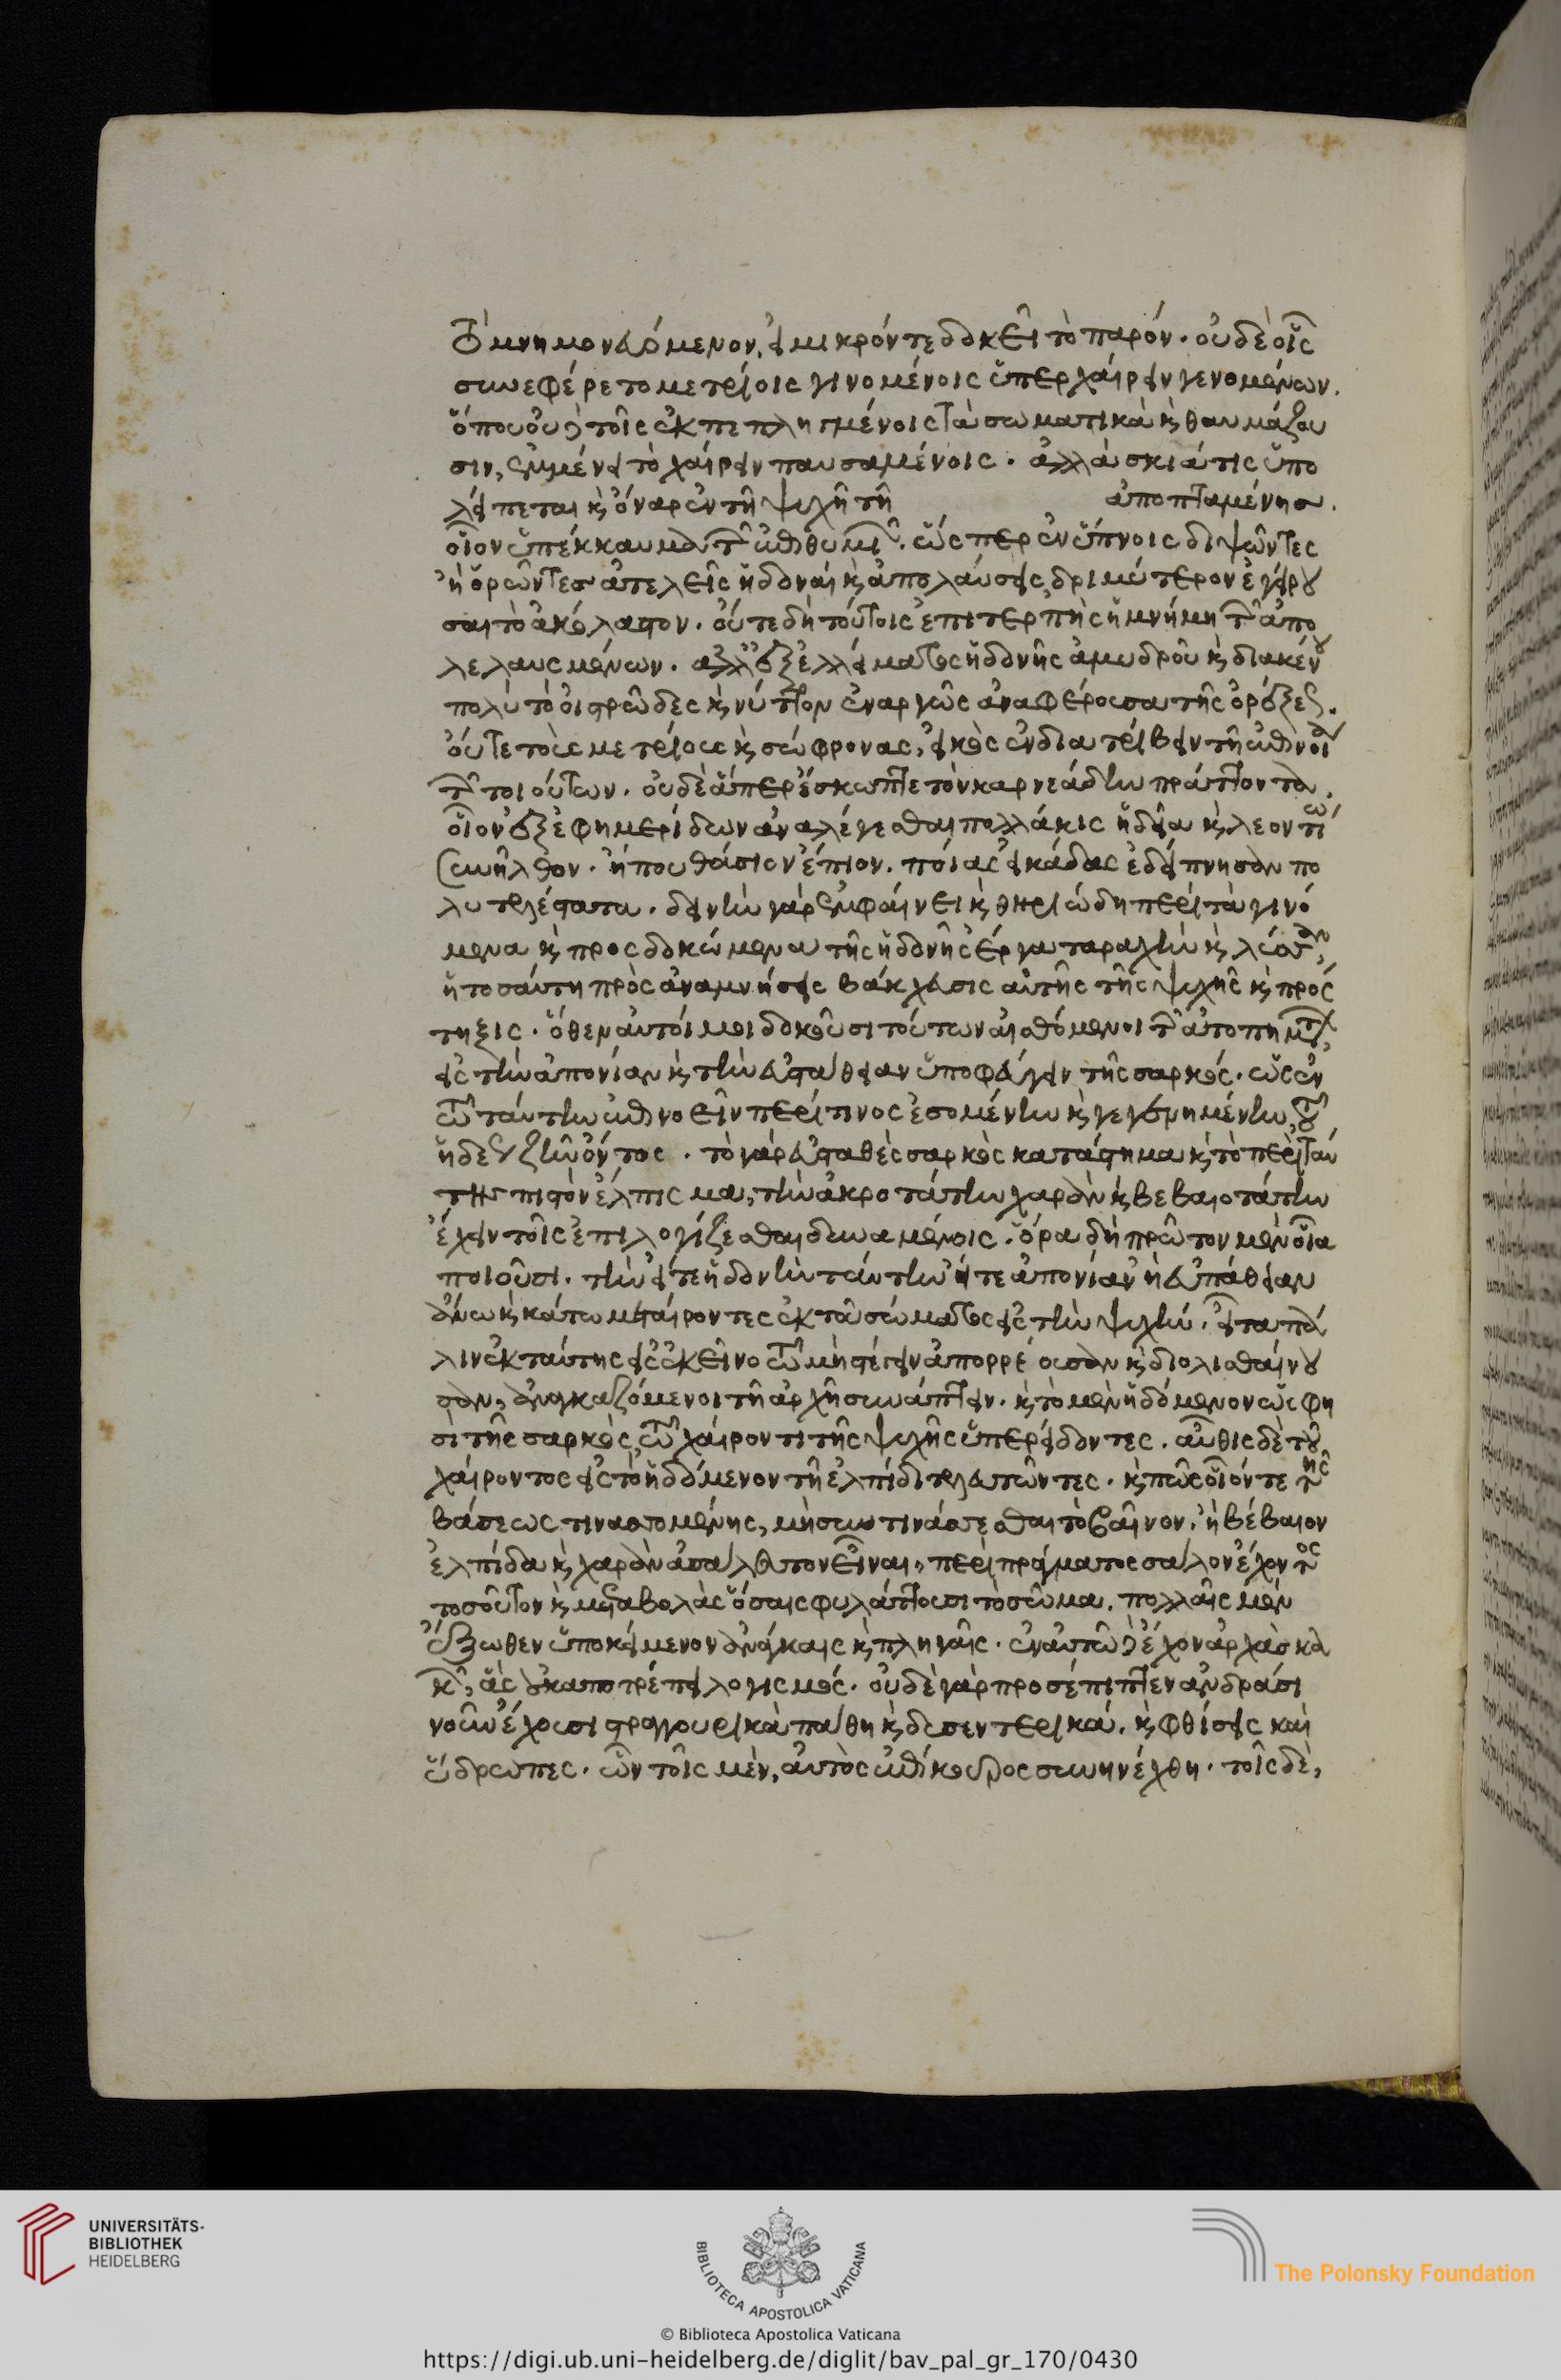 τὸ μνημονευόμενον, εἰ μικρόν τε δοκεῖ τὸ παρόν. οὐδὲ οἷς
συνεφέρετο μετρίοις γινομένοις ὑπερχαίρειν γενομένων.
ὅπου οὐδὲ τοῖς ἐκπεπληγμένοις τὰ σωματικὰ καὶ θαυμάζου
σιν, ἐμμένει τὸ χαίρειν παυσαμένοις. ἀλλὰ σκιά τις ὑπο
λείπεται καὶ ὄναρ ἐν τῇ ψυχῇ τῇ ἀποπταμένης.
οἷον ὑπέκκαυμα τῶν ἐπιθυμιῶν. ὥσπερ ἐν ὕπνοις διψῶντες
ἢ ὁρῶντες ἀτελεῖς ἡδοναὶ καὶ ἀπολαύσεις, δριμύτερον ἐγείρου
σαι τὸ ἀκόλαστον. οὔτε δὴ τούτοις ἐπιτερπὴς ἡ μνήμη τῶν ἀπο
λελαυσμένων. ἀλλ' ἐξ ἐλλείματος ἡδονῆς ἀμυδροῦ καὶ διακένου
πολὺ τὸ οἰστρῶδες καὶ νύττον ἐναργῶς ἀναφέρουσα τῆς ὀρέξεως.
οὔτε τοὺς μετρίους καὶ σώφρονας, εἰκὸς ἐνδιατρίβειν τῇ ἐπινοίᾳ
τῶν τοιούτων. οὐδὲ ἅπερ ἔσκωπτε τὸν καρνεάδην πράττοντα.
οἷον ἐξ ἐφημερίδων ἀναλέγεσθαι ποσάκις ἡδείᾳ καὶ λεοντίῳ
συνῆλθον. ἢ που θάσιον ἔπιον. ποίας εἰκάδας ἐδείπνησαν πο
λυτελέστατα. δεινὴν γὰρ ἐμφαίνει καὶ θηριώδη περὶ τὰ γινό
μενα καὶ προσδοκώμενα τῆς ἡδονῆς ἔργα ταραχὴν καὶ λύσσαν,
ἡ τοσαύτη πρὸς ἀναμνήσεις βάκχευσις αὐτῆς τῆς ψυχῆς καὶ πρός
τηξις. ὅθεν αὐτοί μοι δοκοῦσι τούτων αἰσθόμενοι τῶν ἀτοπημάτων
εἰς τὴν ἀπονίαν καὶ τὴν εὐστάθειαν ὑποφεύγειν τῆς σαρκός. ὡς ἐν
τῷ ταύτην ἐπινοεῖν περί τινος ἐσομένην καὶ γεγενημένην, τοῦ
ἡδέως ζῆν ὄντος. τὸ γὰρ εὐσταθὲς σαρκὸς κατάστημα καὶ τὸ περὶ ταύ
της πιστὸν ἔλπισμα, τὴν ἀκροτάτην χαρὰν καὶ βεβαιοτάτην
ἔχειν τοῖς ἐπιλογίζεσθαι δυναμένοις. ὅρα δὴ πρῶτον μὲν οἷα
ποιοῦσι. τὴν εἴτε ἡδονὴν ταύτην εἴτε ἀπονίαν ἢ εὐπάθειαν
ἄνω καὶ κάτω μεταίροντες ἐκ τοῦ σώματος εἰς τὴν ψυχήν. εἶτα πά
λιν ἐκ ταύτης εἰς ἐκεῖνο τῷ μὴ στέγειν ἀπορρέουσαν καὶ διολισθαίνου
σαν, ἀναγκαζόμενοι τῇ ἀρχῇ συνάπτειν. καὶ τὸ μὲν ἡδόμενον ὥς φη
σι τῆς σαρκὸς, τῷ χαίροντι τῆς ψυχῆς ὑπερείδοντες. αὖθις δὲ τοῦ
χαίροντος εἰς τὸ ἡδόμενον τῇ ἐλπίδι τελευτῶντες. καὶ πῶς οἷόν τε τῆς
βάσεως τινασσομένης, μὴ συντινάσσεσθαι τὸ βαῖνον. ἢ βέβαιον
ἐλπίδα καὶ χαρὰν ἀσάλευτον εἶναι, περὶ πράγματος σάλον ἔχοντος
τοσοῦτον καὶ μεταβολὰς ὅσαις φυλάττουσι τὸ σῶμα. πολλαῖς μὲν
ἔξωθεν ὑποκείμενον ἀνάγκαις καὶ πληγαῖς. ἐν αὑτῷ δὲ ἔχον ἀρχὰς κα
κῶν, ἃς οὐκ ἀποτρέπει λογισμός. οὐδὲ γὰρ προσέπιπτεν ἀνδράσι
νοῦν ἔχουσι στραγγουρικὰ πάθη καὶ δυσεντερικά. καὶ φθίσεις καὶ
ὕδρωπες. ὧν τοῖς μὲν, αὐτὸς ἐπίκουρος συνηνέχθη. τοῖς δὲ,
UNIVERSITÄTS-
BIBLIOTHEK
HEIDELBERG
BIBLIOTECA APOSTOLICA VATICANA
© Biblioteca Apostolica Vaticana
The Polonsky Foundation
https://digi.ub.uni-heidelberg.de/diglit/bav_pal_gr_170/0430